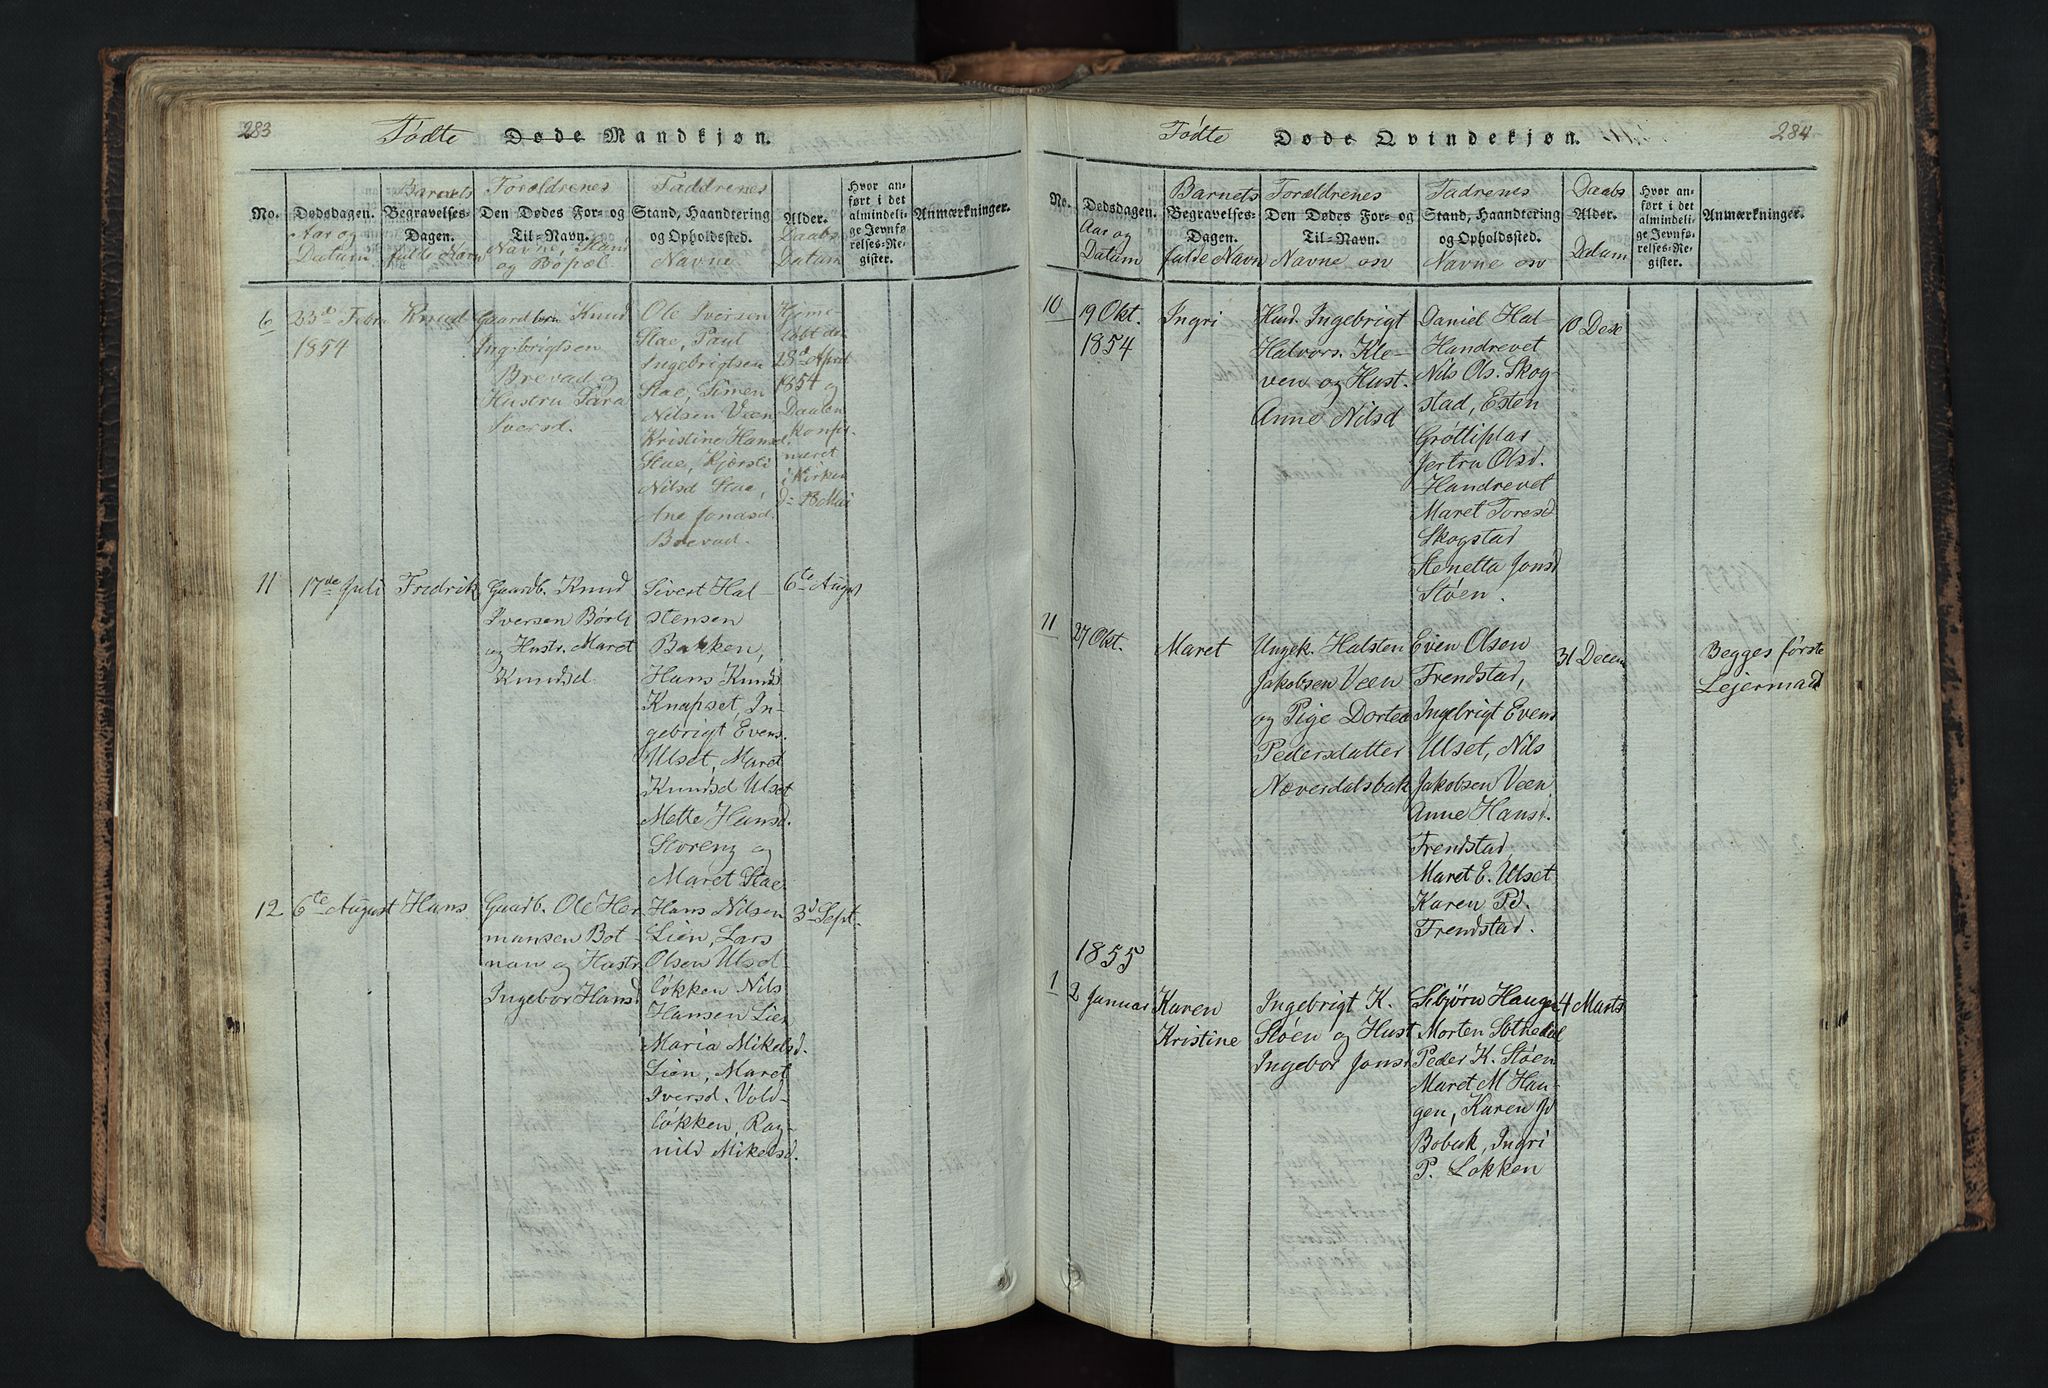 283
Fødte Døde Mandkjøn.
No.
Dødsdagen.
Aar og
Datum
Barnets
Begravelses-
Dagen.
fulde Navn
Forældrenes
Den Dødes For- og
Til-Navn.
Navne, Stand
og Bopæl
Faddrenes
Stand, Haandtering
og Opholdssted.
Navne
Alder.
Daabs
Datum
Hvor an-
ført i det
almindeli-
ge Jevnfø-
relses-Re-
gister.
Anmærkninger.
6
23de Febr
1854
Knud
Gaardbru Knud
Ingebrigtsen
Brevad og
Hustru Tara
Iversd.
Ole Iversen
Stae, Paul
Ingebrigtsen
Stae, Simen
Nilsen Veen
Kristine Hansd.
Stae, Kjersti
Nilsd Stae,
Ane Jonasd.
Brevad.
Hjeme
døbt den
28d April
1854 og
Daaben
konfir-
meret
i Kirken
d= 18 Mai
11
17de Juli
Fredrik
Gaardb. Knud
Iversen Børli
og Hustr. Maret
Knudsd.
Sivert Hal-
stensen
Bakken,
Hans Knuds
Knapset, In-
gebrigt Evens.
Ulset, Maret
Knudsd Ulset
Mette Hansd.
Storeng og
Maret Stae
6te August
12
6te August
Hans
Gaardb. Ole Her
mansen Bot-
nan og Hustr.
Ingebor Hansd
Hans Nilsen
Lien, Lars
Olsen Ulsd-
løkken Nils
Hansen Lien
Maria Mikelsd.
Lien, Maret
Iversd. Vold-
løkken, Rag-
nild Mikelsd.
3d Sept.
284
Fødte Døde Qvindekjøn.
No.
Dødsdagen.
Aar og
Datum
Barnets
Begravelses-
Dagen.
fulde Navn
Forældrenes
Den Dødes For- og
Til-Navn.
Navne osv
Fadrenes
Stand, Haandtering
og Opholdssted.
Navne osv
Daabs
Alder.
Datum
Hvor an-
ført i det
almindeli-
ge Jevnfø-
relses-Re-
gister.
Anmærkninger.
10
19 Okt.
1854
Ingri
Husd. Ingebrigt
Halvors. Kle-
ven og Hust.
Anne Nilsd
Daniel Hal-
Handrevet
Nils Ols. Skog-
stad, Esten
Grøttiplas
Jertru Olsd.
Handrevet
Maret Toresd
Skogstad
Stenetta Jonsd
Støen.
10 Dese
11
27 Okt.
Maret
Ungk. Halsten
Jakobsen Veen
og Pige Dortea
Pedersdatter
Næverdalsbak
Even Olsen
Frendstad,
Ingebrigt Evens
Ulset, Nils
Jakobsen Veen
Anne Hansd.
Frendstad
Maret E. Ulset
Karen Pd.
Frendstad.
31 Decem
Begges første
Lejermaal
1855
1
2 Januar
Karen
Kristine
Ingebrigt K.
Støen og Hust
Ingebor Jonsd
Esbjørn Haugen
Morten Sothedal
Peder K. Støen
Maret M Hau-
gen, Karen Jd
Bobak, Ingri
P. Løkken
4 Marts